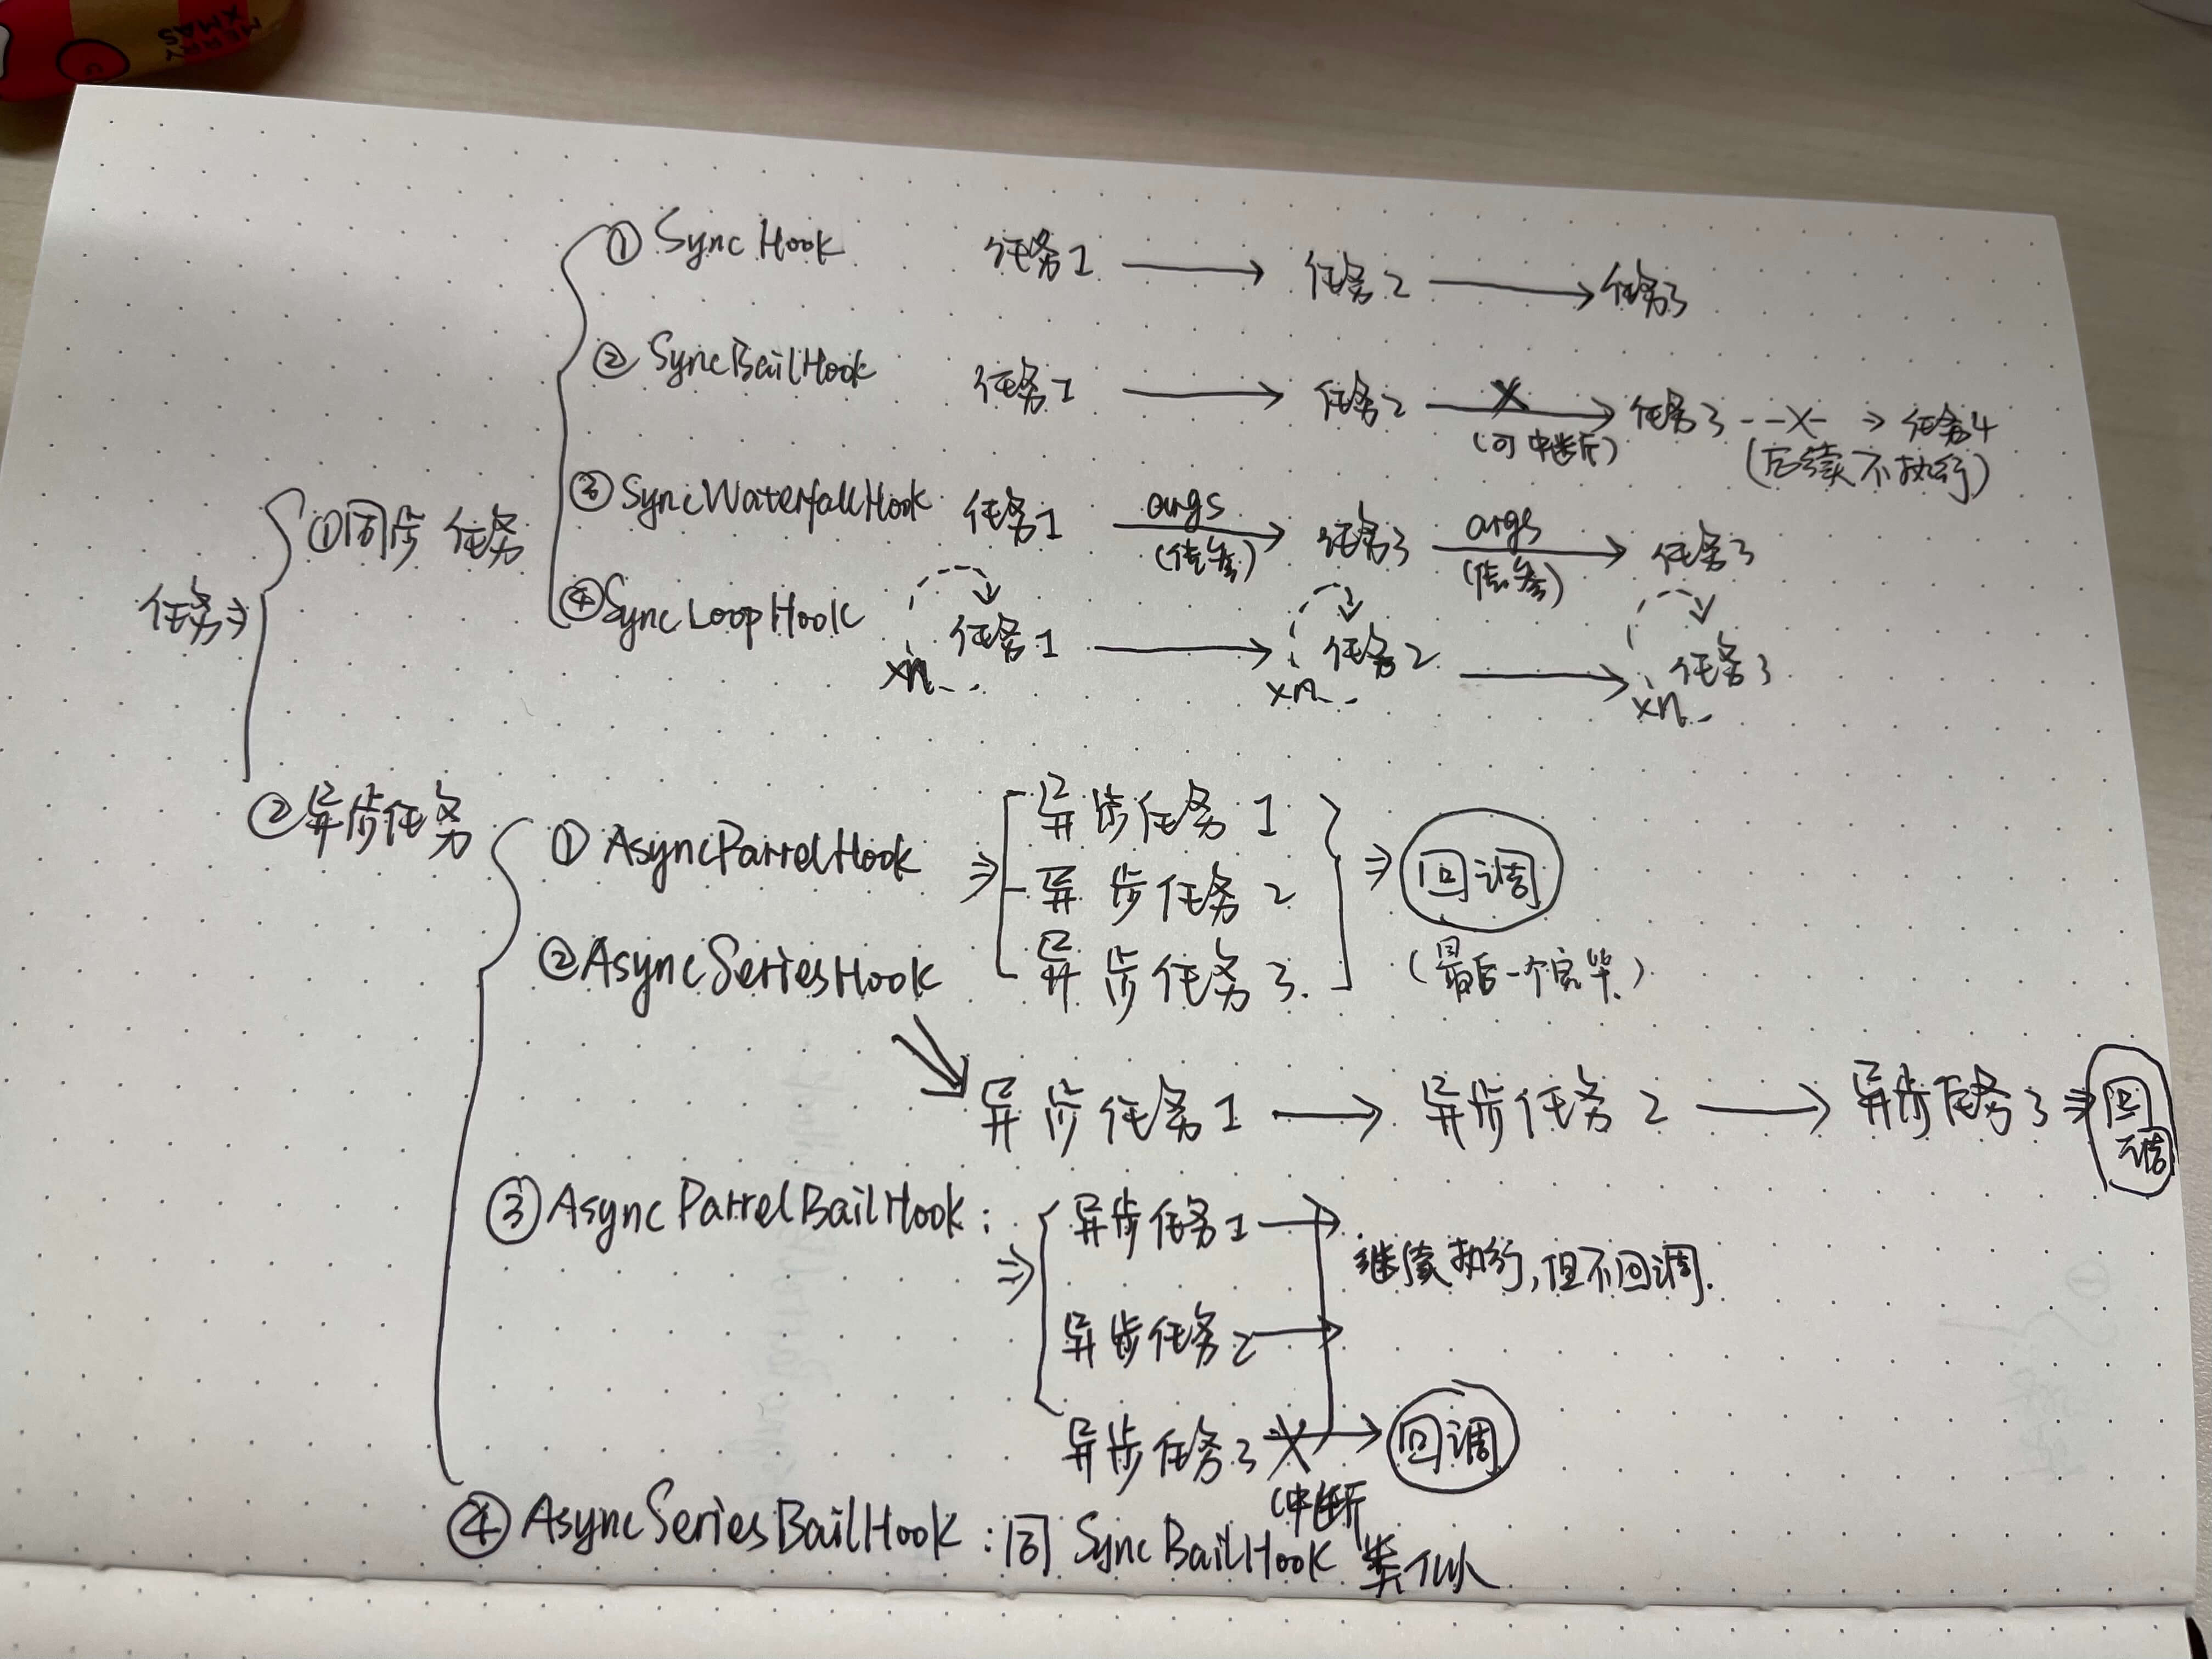 MERRY
XMAS
① SyncHook 任务1 → 任务2 → 任务3
② SyncBailHook 任务1 → 任务2 → 任务3 --x-- → 任务4
(可中断) (后续不执行)
③ SyncWaterfallHook 任务1 args → 任务3 args → 任务3
(传参) (传参)
① 同步任务
任务 ⇒
④ SyncLoopHook 任务1 → 任务2 → 任务3
xn... xn... xn..
② 异步任务
① AsyncParrelHook ⇒ 异步任务1
异步任务2 ⇒ 回调
② AsyncSeriesHook 异步任务3. (最后一个完毕)
异步任务1 → 异步任务2 → 异步任务3 ⇒ 回调
③ AsyncParrelBailHook: ⇒ 异步任务1 →
继续执行,但不回调.
异步任务2 →
异步任务3 x → 回调
(中断
④ AsyncSeriesBailHook: 同 SyncBailHook 类似